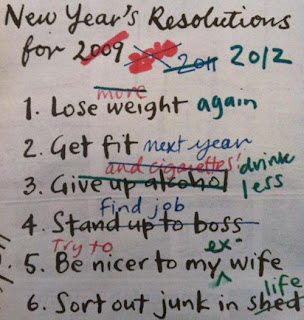 New Year's Resolutions
for 2009 2011 2012
more
1. Lose weight again
2. Get fit next year
and cigarettes! drink
3. Give up alcohol less
find job
4. Stand up to boss
Try to ex-
5. Be nicer to my wife
life
6. Sort out junk in shed